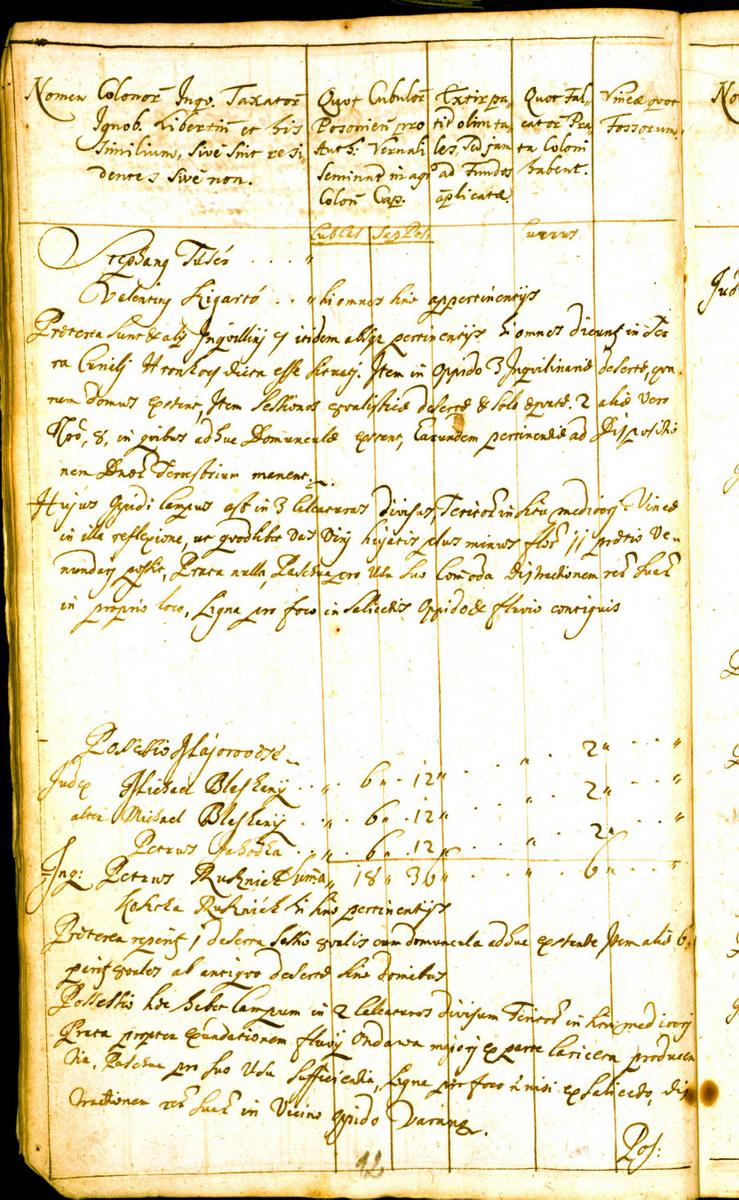 Nomen Colonor Inqv. Taxator
Ignob. Libertin et his
Similium, Sive Sint resi,
dentes Sive non.
Quot Cubulor
Posonien pro
Auth: Vernali
Seminat in agr
Colon Cap.
Extirpa,
ti d olim ta,
les, Sed jam
ad Fundos
applicatæ.
Quot Fal,
cator Pra,
ta Coloni
habent.
Vineæ quot
Fossorum.
Cub Cas Seg Pos. Currus
Stephang
Valenting " hi omnes sine appertinentijs
Præterea Sunt & alij Inqvillinj itidem absq pertinentijs hi omnes dicunt in Ter
ra dicta esse situatj. Item in Oppido 3 Inqvilinariæ desertæ, qua
rum domus extant, Item Sessiones desertæ & solo æquatæ. 2 aliæ vero
Nro, 8. in quibus adhuc Domunculæ extant, Earundem pertinentiæ ad Dispositio
nem Dnor Terrestrium manent.
Hujus Oppidi Campus est in 3 Calcaturas divisus, in Situ mediocrj. Vineæ
in illa reflexione, ut quodlibet Vas Vinj hujatis plus minus flor 11 prætio Ve,
nundarj possit, Prata nulla, Pascua pro Usu Suo Comoda Distractionem rer Suar
in proprio loco, Ligna pro foco in Salicetis Oppido & fluvio contiguis
Possessio Majorocz
Judex Michael Blaskany . . " 6 " . 12 " . . " . 2 " . . "
alter Michael Blaskany . . " 6 " . 12 " . . " . 2 " . . "
Petrus . . " 6 " . 12 " . . " . 2 " . . "
Inq: Petrus Ruszniak Suma " 18 " 36 " . . " . 6 " . . "
Ruszniak hi sine pertinentijs
Præterea reperit 1 deserta Sessio cum domuncula adhuc extante Item aliæ 6.
ab antiquo desertæ sine domibus
Possessio hæc habet Campum in 2 Calcaturas divisum in mediocrj
Prata propter exundationem fluvij Ondawa majorj ex parte caricem producen
tia, Pascua pro Suo Usu Sufficientia, Ligna pro foco nisi ex Saliceto, dis
tractionem rer Suar in Vicino Oppido
Pos:
12